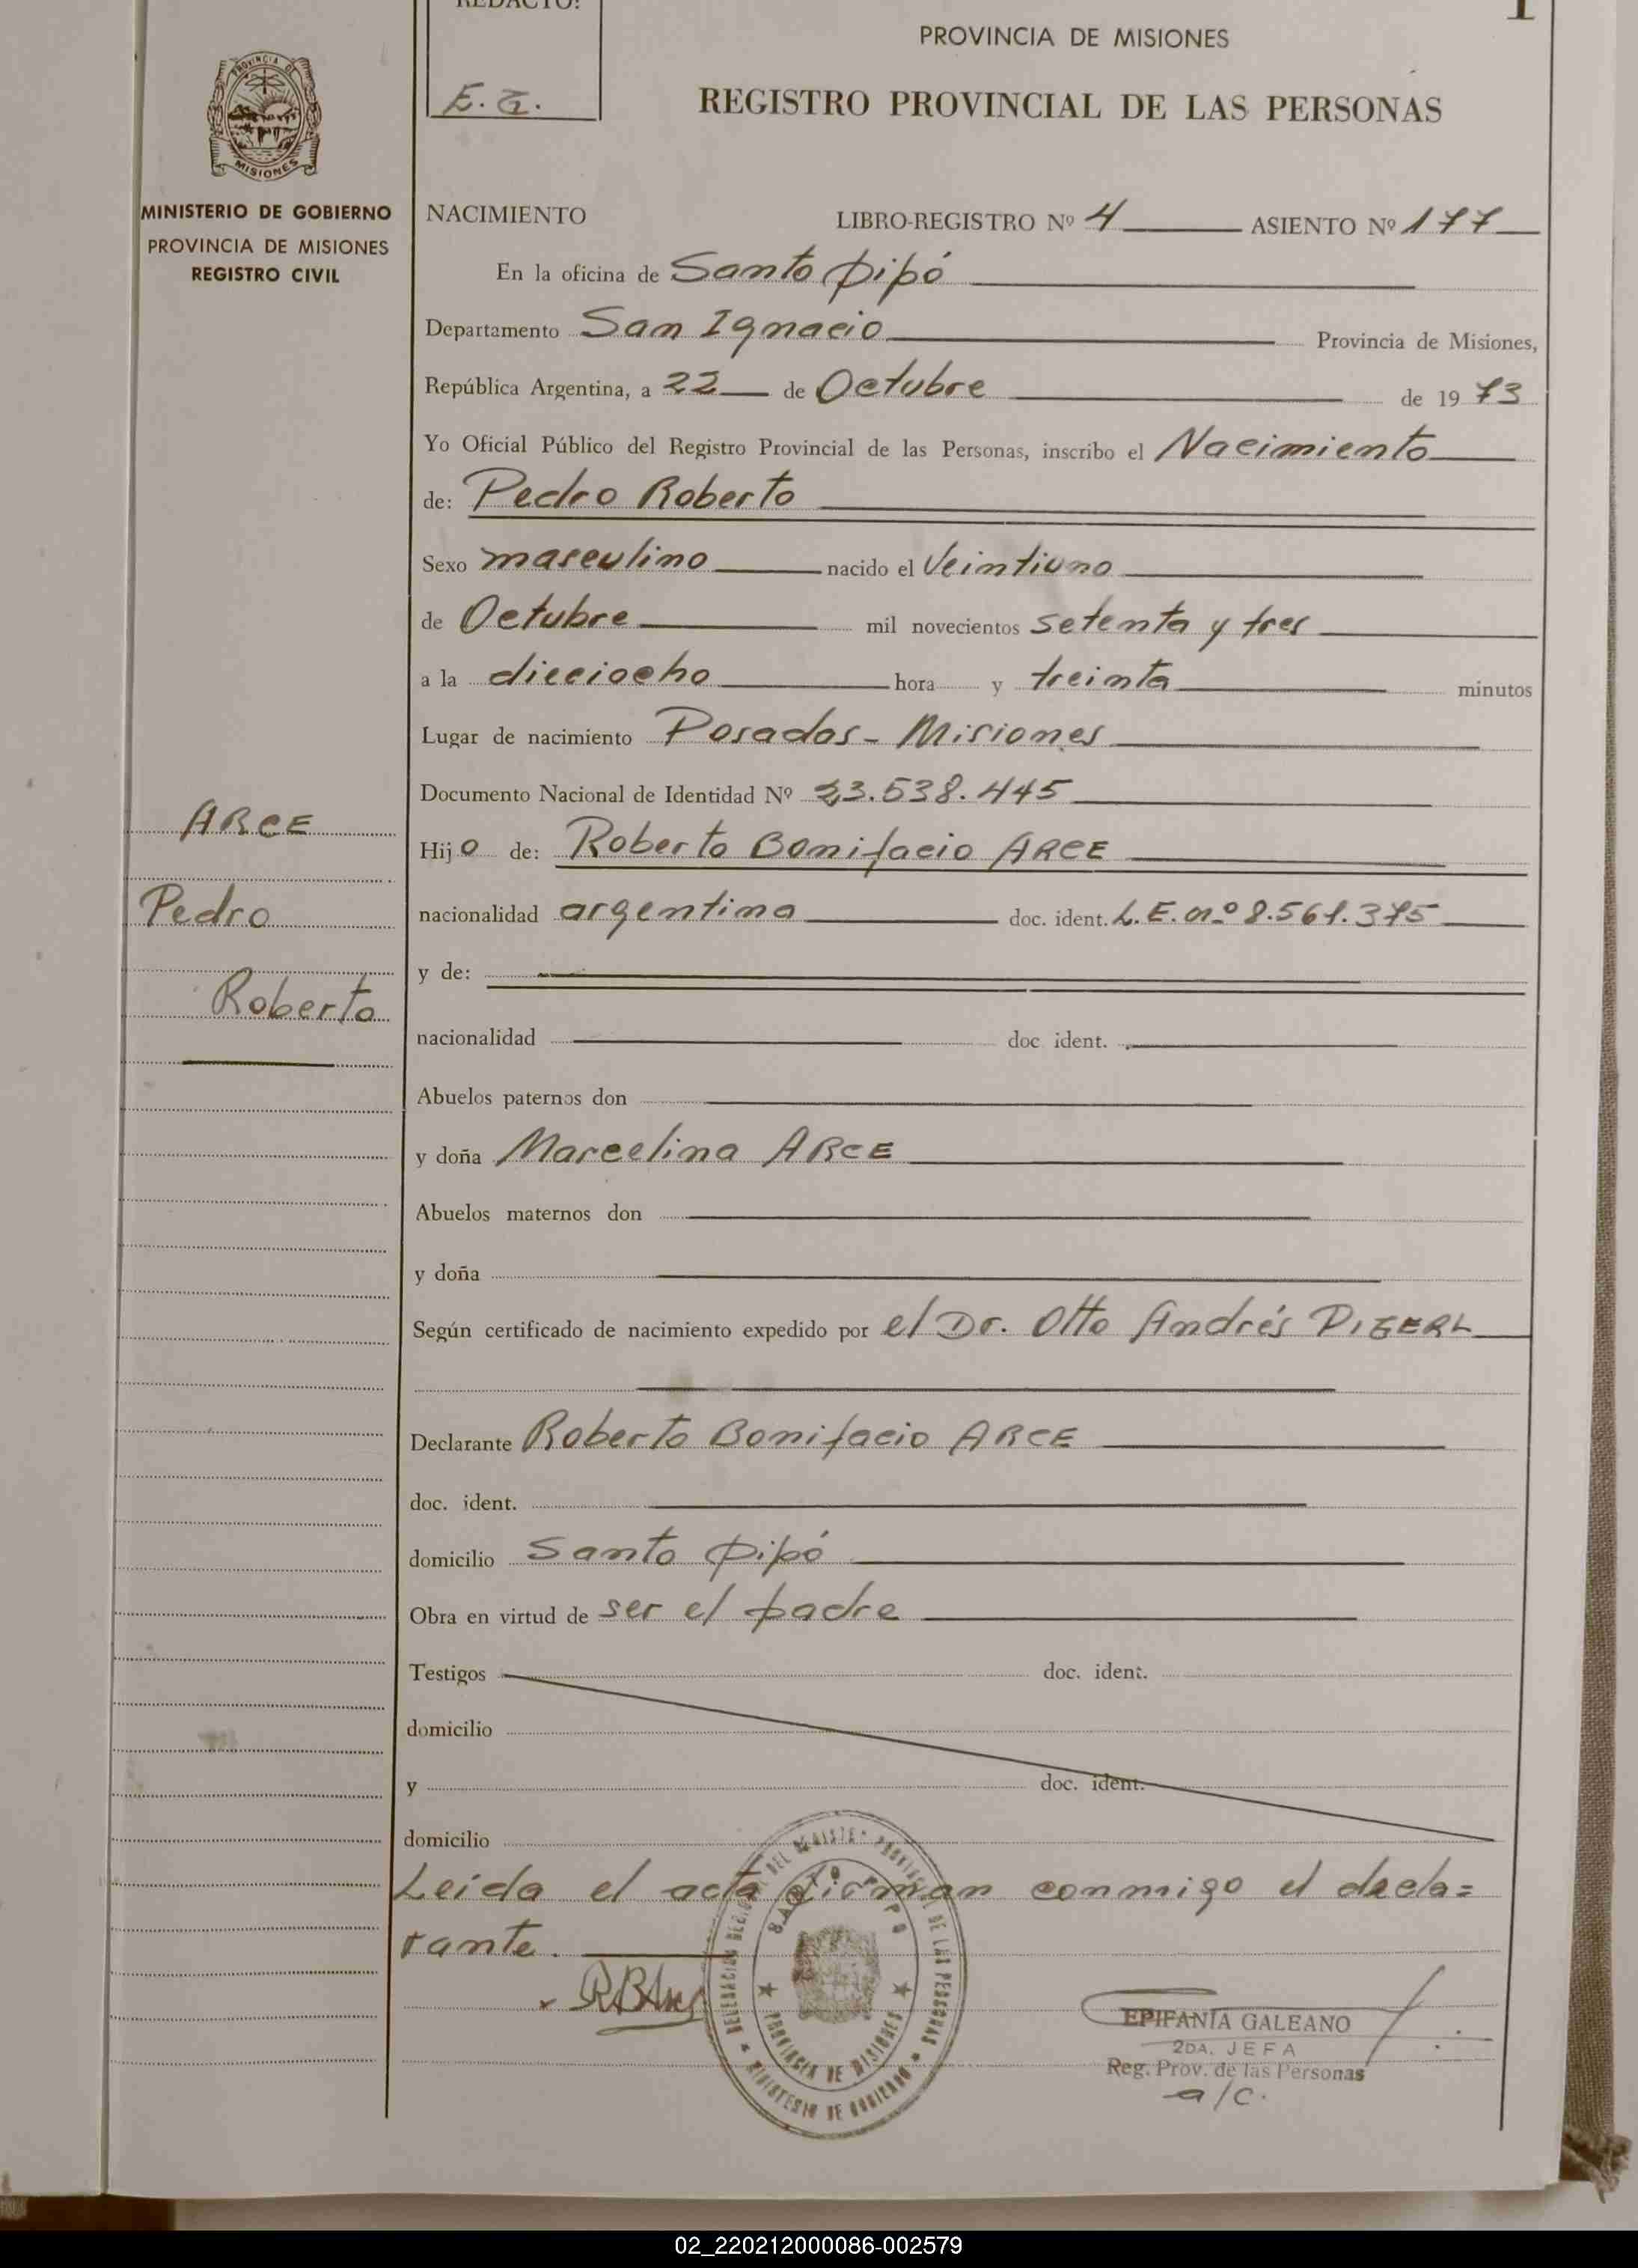 REDACTO:
E. G.
PROVINCIA DE MISIONES
REGISTRO PROVINCIAL DE LAS PERSONAS
PROVINCIA DE
MISIONES
MINISTERIO DE GOBIERNO
PROVINCIA DE MISIONES
REGISTRO CIVIL
NACIMIENTO LIBRO-REGISTRO Nº 4 ASIENTO Nº 177
En la oficina de Santo Pipó
Departamento San Ignacio Provincia de Misiones,
República Argentina, a 22 de Octubre de 1973
Yo Oficial Público del Registro Provincial de las Personas, inscribo el Nacimiento
de: Pedro Roberto
Sexo masculino nacido el Veintiuno
de Octubre mil novecientos setenta y tres
a la dieciocho hora y treinta minutos
Lugar de nacimiento Posadas - Misiones
Documento Nacional de Identidad Nº 23.538.445
Hijo de: Roberto Bonifacio ARCE
nacionalidad argentina doc. ident. L. E. nº 8.561.375
y de:
nacionalidad doc ident.
Abuelos paternos don
y doña Marcelina ARCE
Abuelos maternos don
y doña
Según certificado de nacimiento expedido por el Dr. Otto Andrés
Declarante Roberto Bonifacio ARCE
doc. ident.
domicilio Santo Pipó
Obra en virtud de ser el padre
Testigos doc. ident.
domicilio
y doc. ident.
domicilio
Leida el acta firman conmigo el decla=
rante.
ARCE
Pedro
Roberto
SANTO PIPO
PROVINCIA DE MISIONES
MINISTERIO DE GOBIERNO
EPIFANIA GALEANO
2DA. JEFA
Reg. Prov. de las Personas
a/c.
02_220212000086-002579